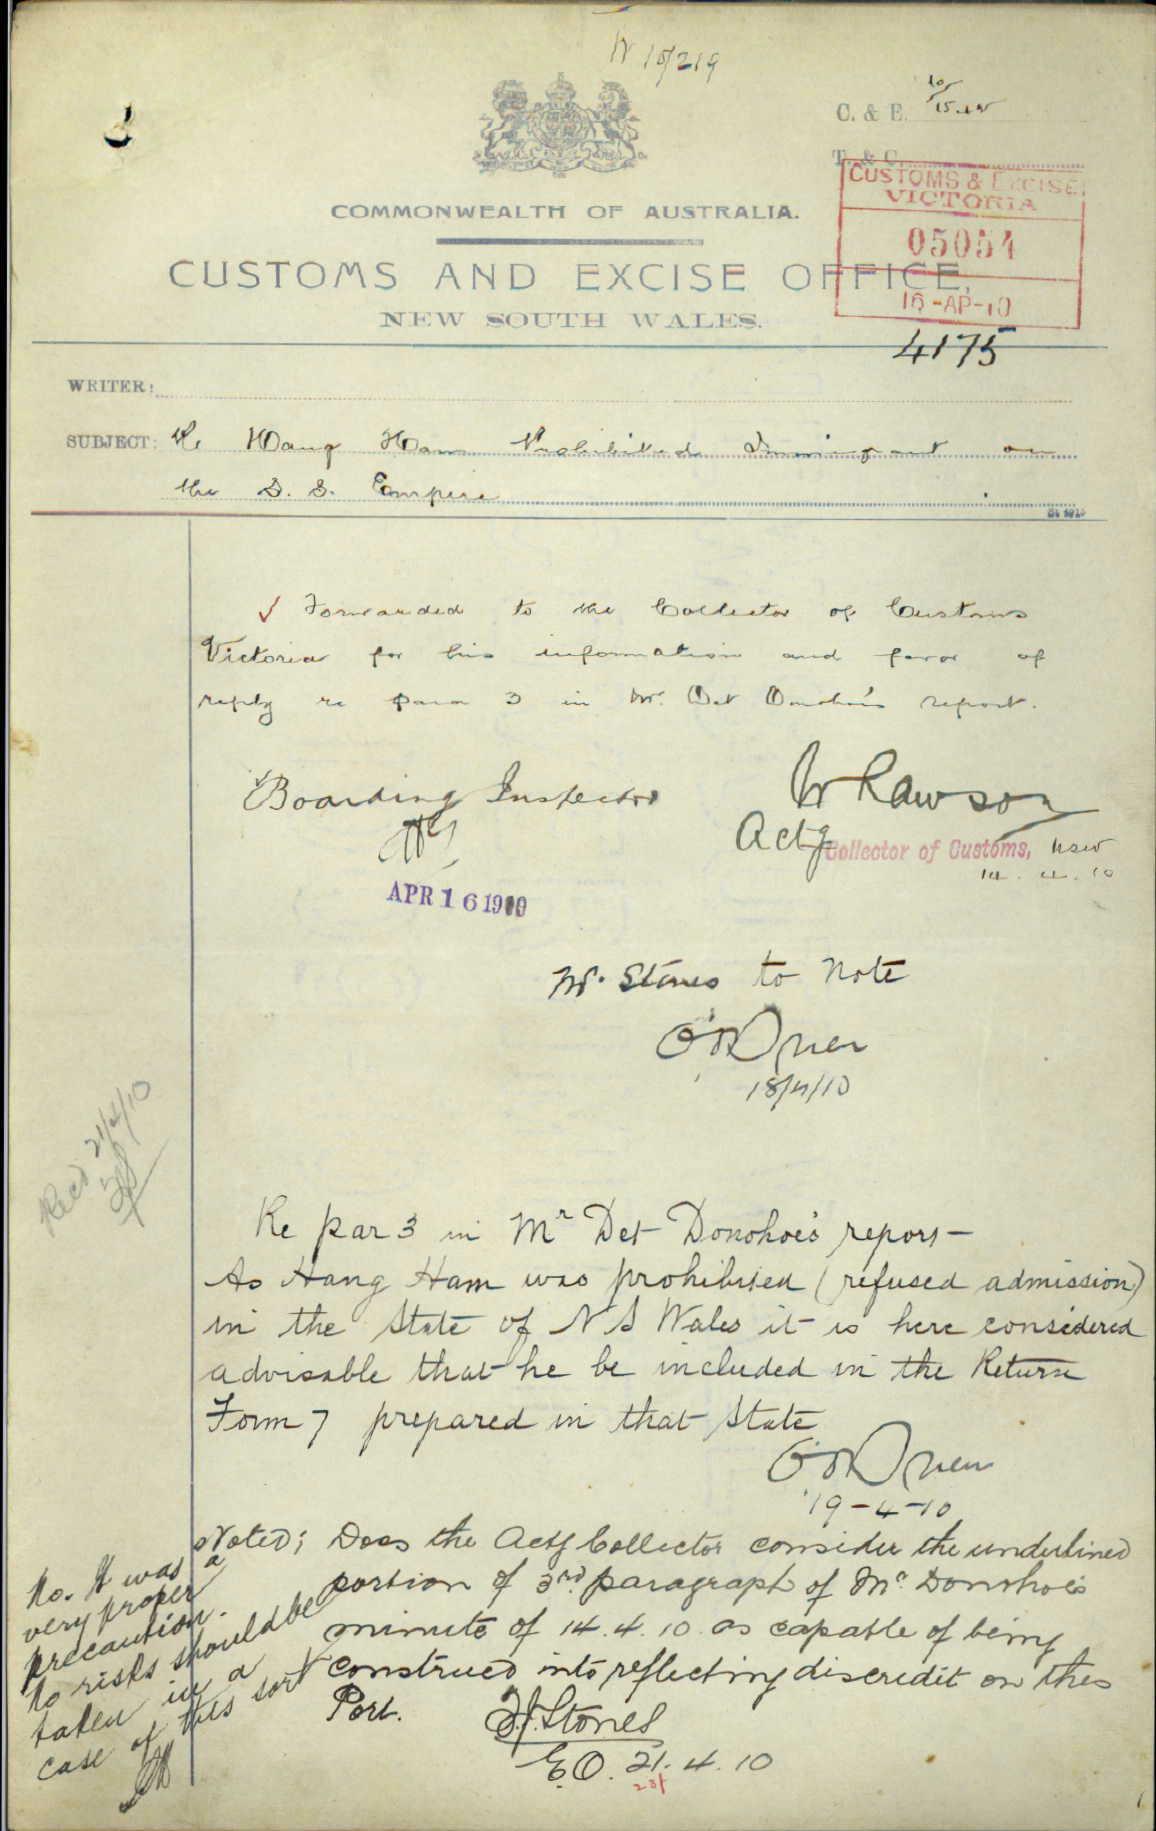 W 10/219
C. & E. 10/
T. & C.
CUSTOMS & EXCISE
VICTORIA
05054
16-AP-10
4175
COMMONWEALTH OF AUSTRALIA.
CUSTOMS AND EXCISE OFFICE,
NEW SOUTH WALES.
WRITER:
SUBJECT: Re Hang Ham Prohibited Immigrant on
the S. S. Empire
Forwarded to the Collector of Customs
Victoria for his information and favor of
reply re para 3 in Mr. Det Donohoe's report.
Boarding Inspector
W Lawson
Actg Collector of Customs, NSW
14.4.10
APR 16 1910
Mr. Stones to Note
18/4/10
Recd 21/4/10
Re par 3 in Mr Det Donohoe's report -
As Hang Ham was prohibited (refused admission)
in the State of N S Wales it is here considered
advisable that he be included in the Return
Form 7 prepared in that State
19-4-10
Noted; Does the Actg Collector consider the underlined
portion of 3rd paragraph of Mr. Donohoe's
minute of 14.4.10 as capable of being
construed into reflecting discredit on this
Port.
J. Stones
E.O. 21.4.10
No. It was a
very proper
precaution.
No risks should be
taken in a
case of this sort